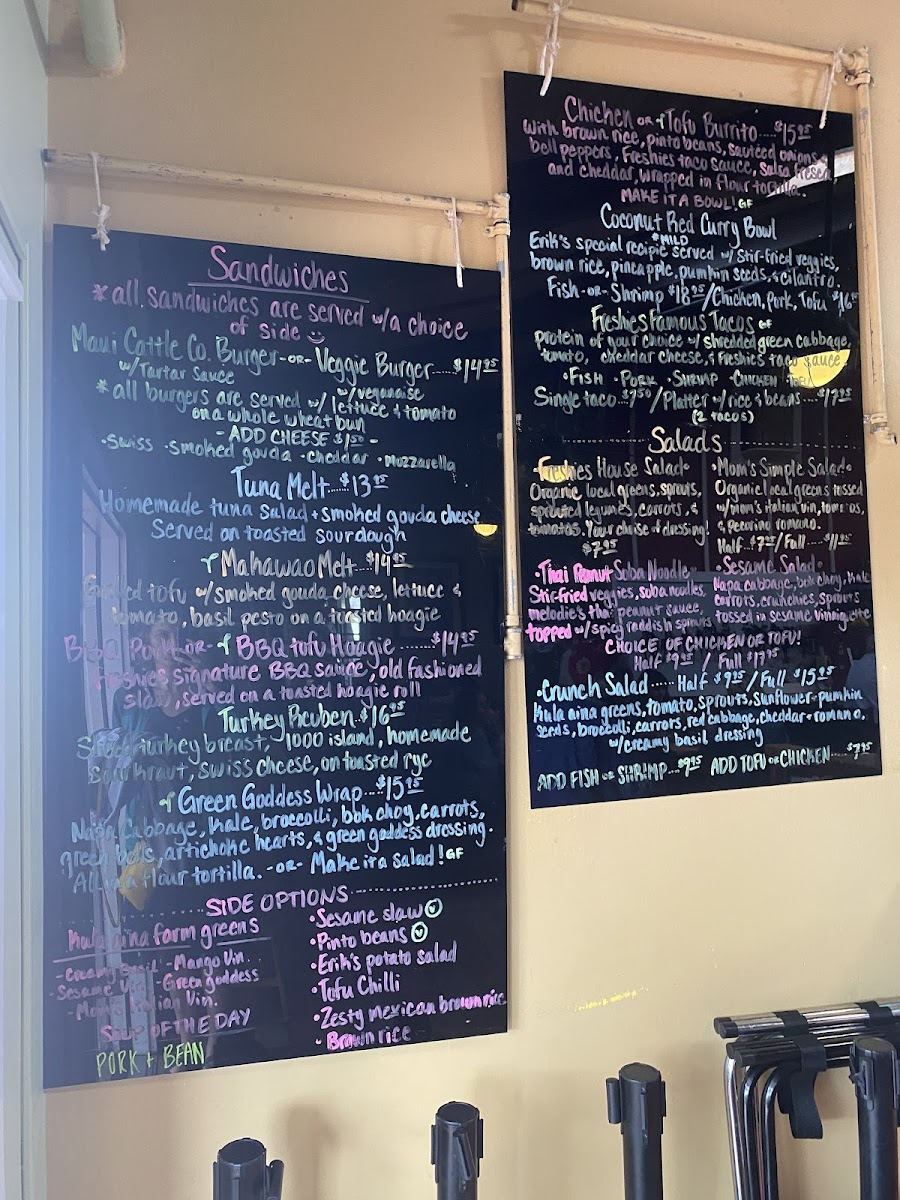 Sandwiches
*all sandwiches are served w/a choice
of side
Maui Cattle Co. Burger -or- Veggie Burger.....$14.95
w/Tartar Sauce w/veganaise
*all burgers are served w/ lettuce + tomato
on a whole wheat bun
- ADD CHEESE $1.50 -
•Swiss •smoked gouda •cheddar •mozzarella
Tuna Melt...$13.95
Homemade tuna salad + smoked gouda cheese
Served on toasted sourdough
Makawao Melt...$14.95
tofu w/smoked gouda cheese, lettuce &
tomato, basil pesto on a toasted hoagie
BBQ Pork -or- BBQ tofu Hoagie.......$14.95
Freshies signature BBQ sauce, old fashioned
slaw, served on a toasted hoagie roll
Turkey Reuben.$16.95
Sliced turkey breast, 1000 island, homemade
Saurkraut, swiss cheese, on toasted rye
Green Goddess Wrap....$15.95
Napa Cabbage, kale, broccolli, bok choy, carrots,
green bells, artichoke hearts, & green goddess dressing.
All in a flour tortilla. -OR- Make it a salad! GF
SIDE OPTIONS
Kula aina farm greens
-Creamy Basil -Mango Vin.
-Sesame Vin. -Green goddess
-Mom's Italian Vin.
SOUP OF THE DAY
PORK + BEAN
•Sesame slaw
•Pinto beans
•Erik's potato salad
•Tofu Chilli
•Zesty mexican brown rice
•Brown rice
Chicken OR Tofu Burrito....$15.95
with brown rice, pinto beans, sauteed onions &
bell peppers, Freshies taco sauce, salsa fresca
and cheddar, wrapped in flour tortilla.
MAKE IT A BOWL! GF
Coconut Red Curry Bowl
*MILD
Erik's special recipie served w/ Stir-fried veggies,
brown rice, pineapple, pumkin seeds, & cilantro.
Fish -or- Shrimp $18.95/Chicken, Pork, Tofu
Freshies Famous Tacos GF
protein of your choice w/ shredded green cabbage,
tomato, cheddar cheese, & Freshies taco sauce
•FISH •PORK •SHRIMP •CHICKEN •TOFU
Single taco...$7.50/Platter w/rice & beans...$17.95
(2 tacos)
Salads
•Freshies House Salad•
Organic local greens, sprouts,
sprouted legumes, carrots, &
tomatoes. Your choise of dressing!
$7.95
•Mom's Simple Salad•
Organic local greens tossed
w/mom's italian vin, tomatos,
& Pecorino romano.
Half...$7.95/Full.....$11.95
•Thai Peanut Soba Noodle
Stir-fried veggies, soba noodles,
melodie's thai peanut sauce,
topped w/spicy raddish sprouts
•Sesame Salad•
Napa cabbage, bok choy, kale
carrots, crunchies, sprouts
tossed in sesame
CHOICE OF CHICKEN OR TOFU!
Half $9.95 / Full $17.95
•Crunch Salad ..... Half $9.95/Full $15.95
Kula aina greens, tomato, sprouts, Sunflower + pumkin
seeds, broccolli, carrots, red cabbage, cheddar + romano,
w/creamy basil dressing
ADD FISH OR SHRIMP...$9.95 ADD TOFU OR CHICKEN....$7.95